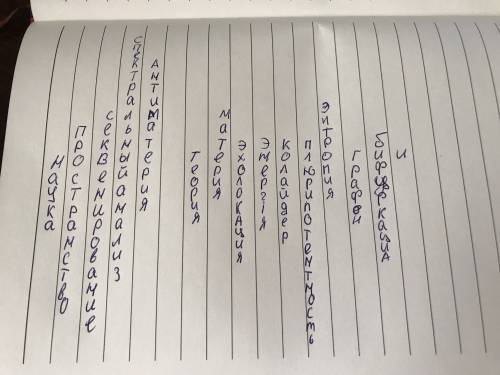 наука
пространство
секвенирование
спектральныйанализ
антиматерия
теория
материя
эхолокация
энергия
колайдер
плюрипотентность
энтропия
графен
бифуркация
и